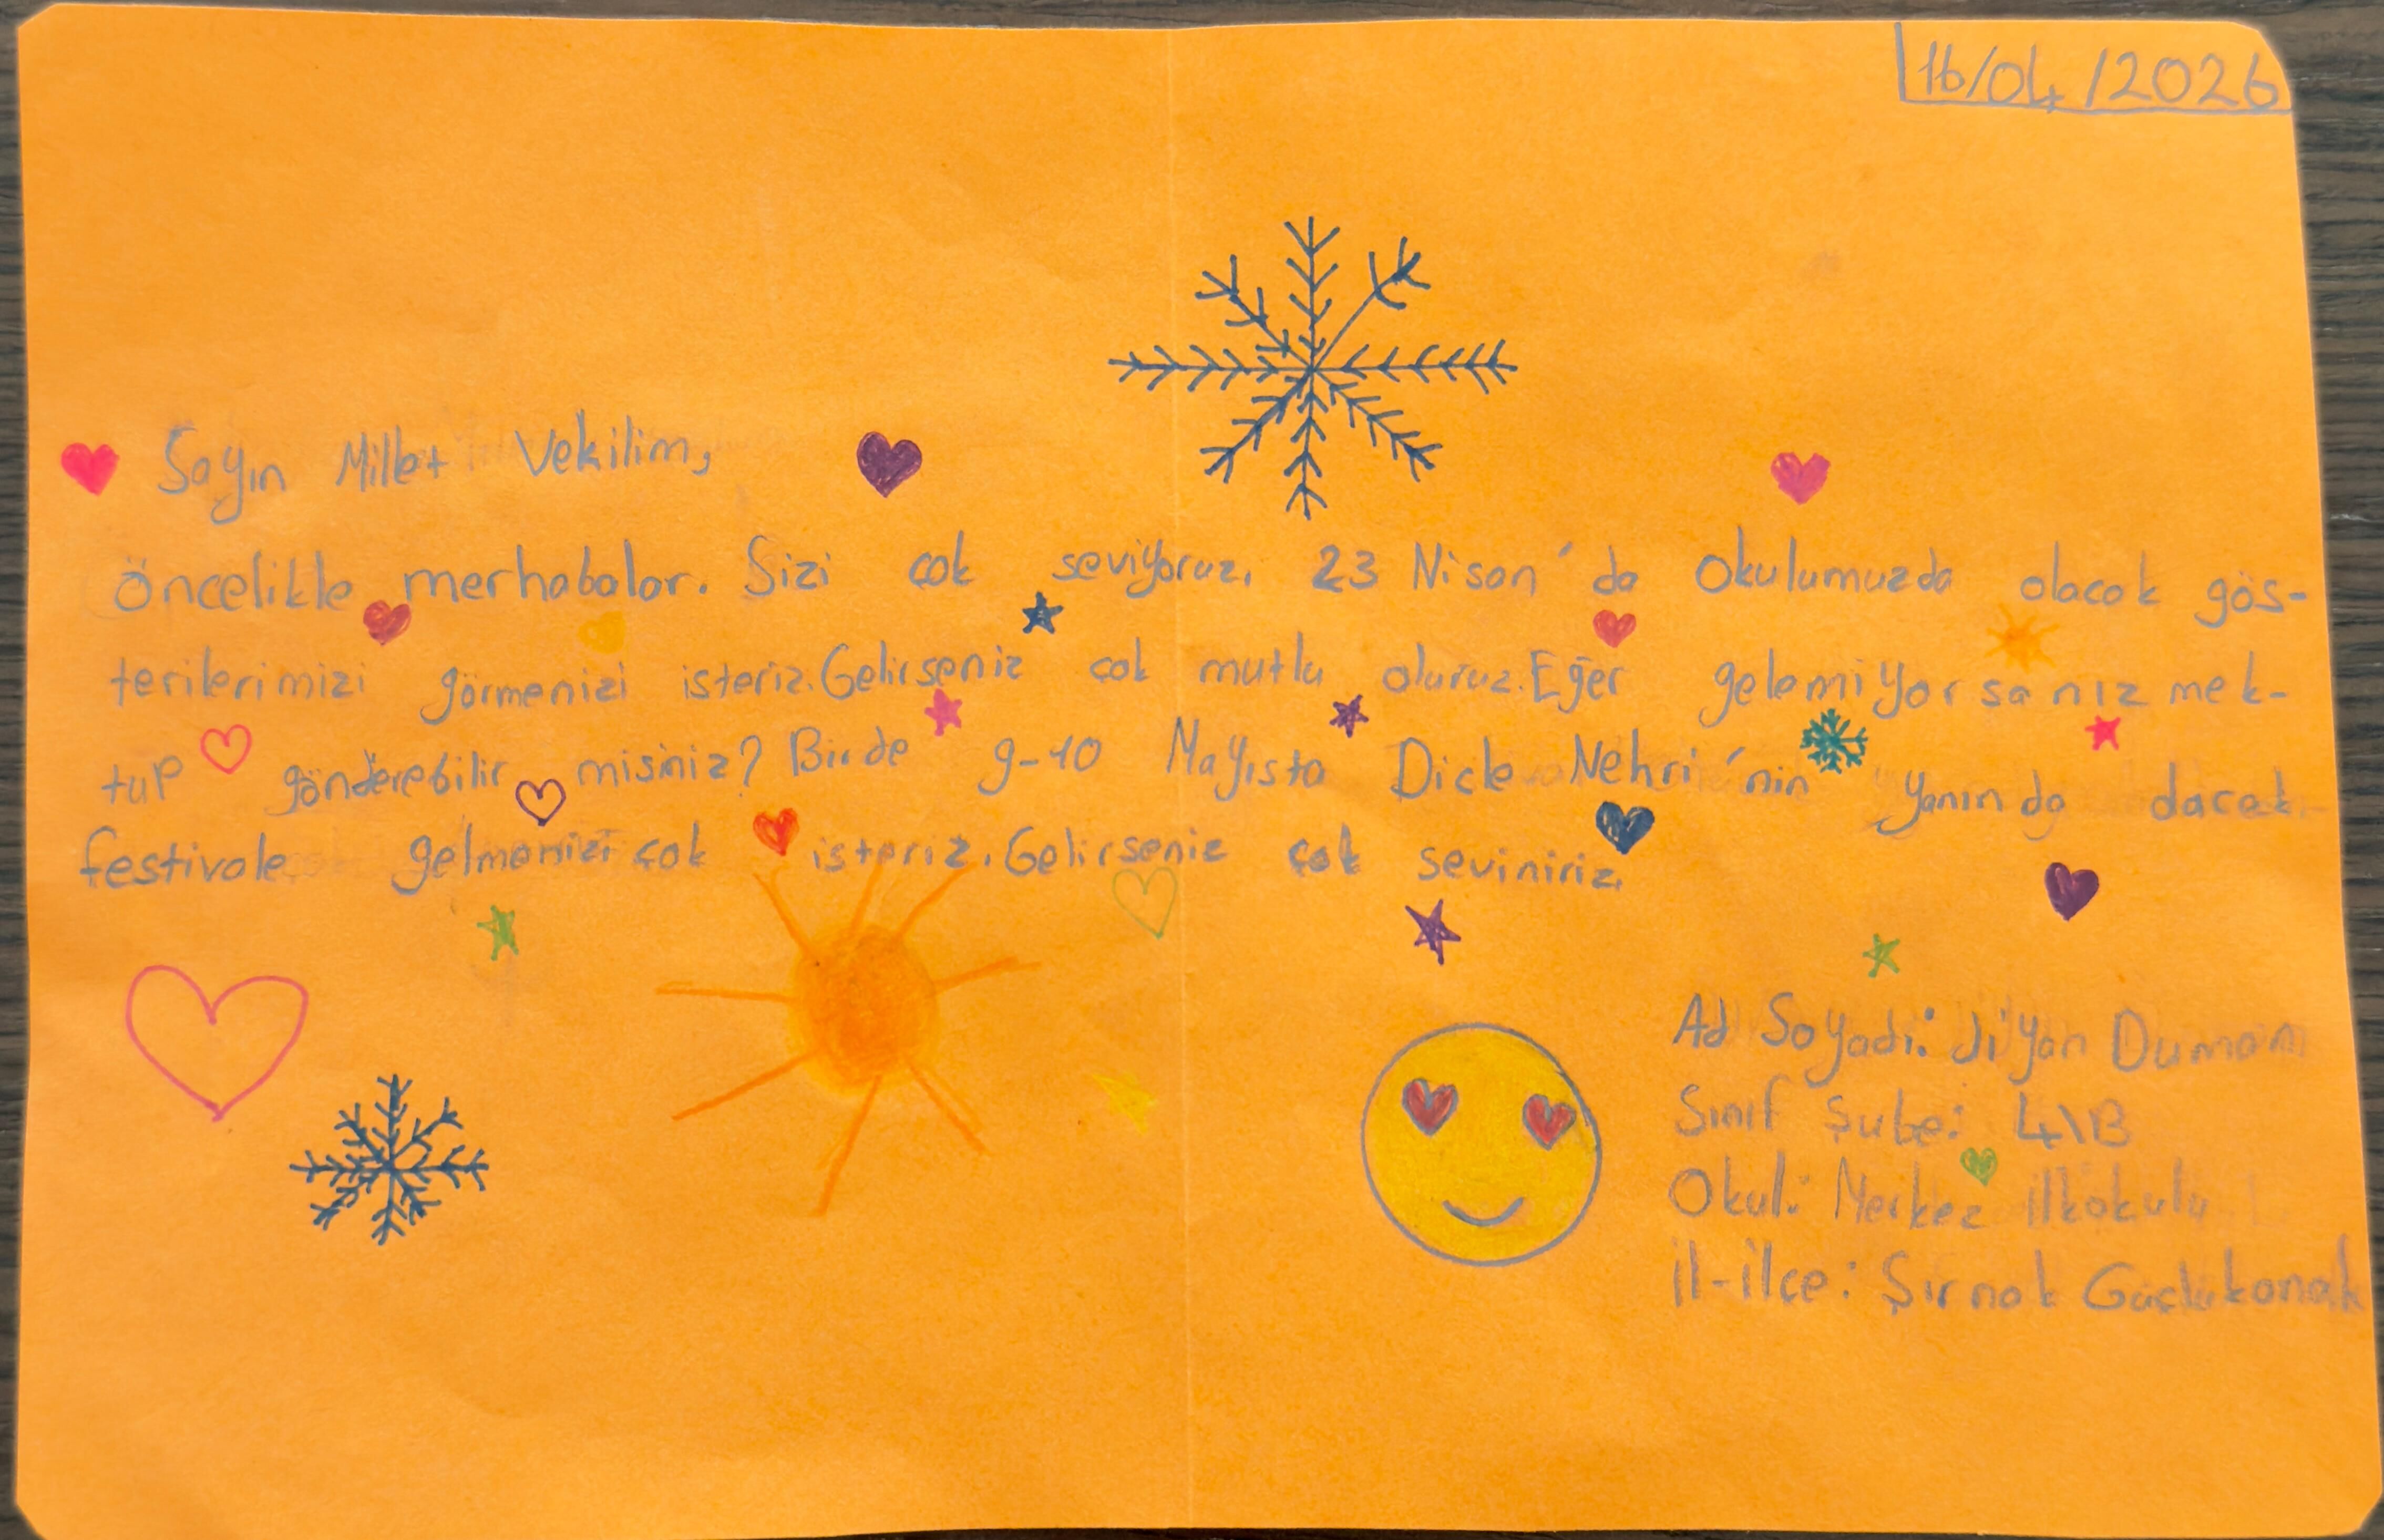 16/04/2026
Sayın Millet Vekilim,
Öncelikle merhabalar. Sizi çok seviyoruz. 23 Nisan'da Okulumuzda olacak gös-
terilerimizi görmenizi isteriz. Gelirseniz çok mutlu oluruz. Eğer gelemiyorsanız mek-
tup gönderebilir misiniz? Birde 9-10 Mayısta Dicle Nehri'nin yanında olacak
festivale gelmenizi çok isteriz. Gelirseniz çok seviniriz.
Ad Soyadi: Jiyan Duman
Sınıf Şube: 4\B
Okul: Merkez ilkokulu
il-ilçe: Şırnak Güçlükonak